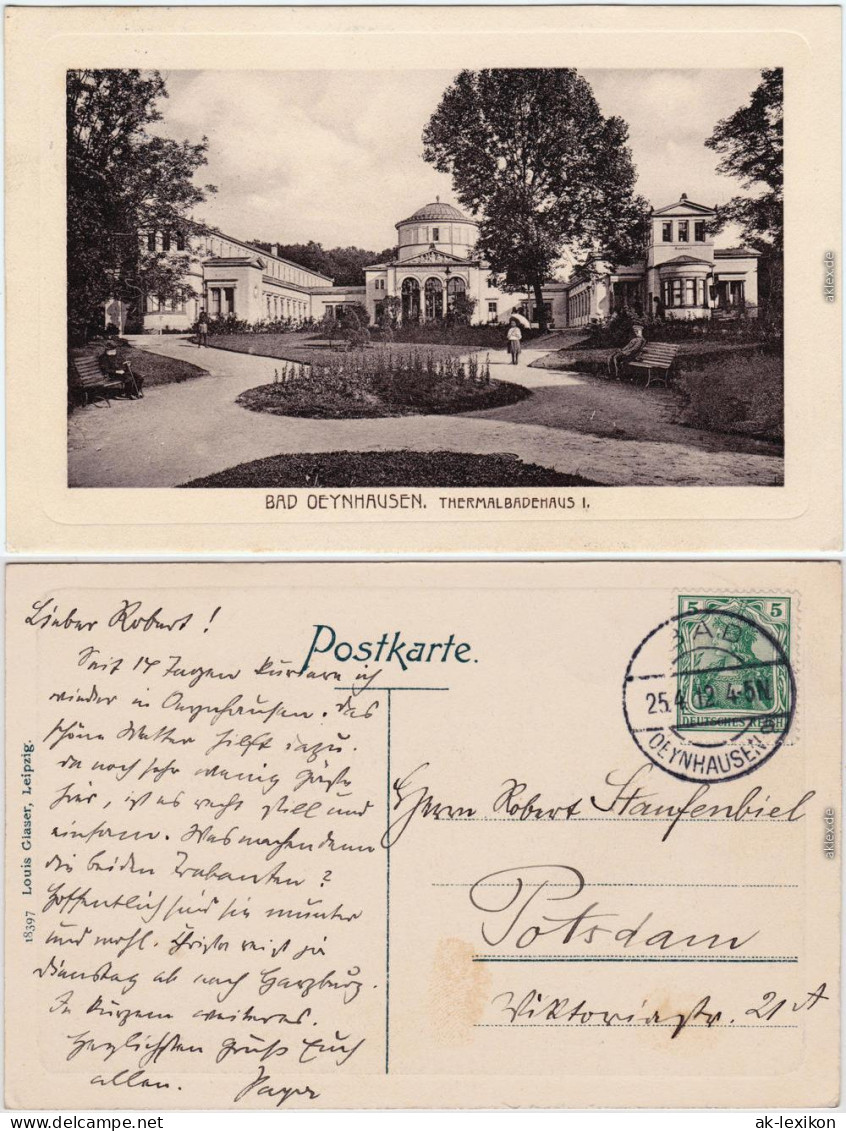 BAD OEYNHAUSEN. THERMALBADEHAUS I.
aklex.de
Lieber Robert!
Seit 14 Tagen kuriere ich
wieder in Oeynhausen. Das
schöne Wetter hilft dazu.
Da noch sehr wenig Gäste
hier, ist es recht still und
einsam. Was machen denn
die beiden Trabanten?
Hoffentlich sind sie munter
und wohl. reist
Dienstag ab nach Harzburg.
In Kurzem weiteres.
Herzlichsten Gruß Euch
allen.
Postkarte.
18397 Louis Glaser, Leipzig.
5 5
DEUTSCHES REICH
BAD
25.4.12 4-5N
OEYNHAUSEN a
Herrn Robert Staufenbiel
Potsdam
Viktoriastr. 21A
aklex.de
aklex.de
ak-lexikon